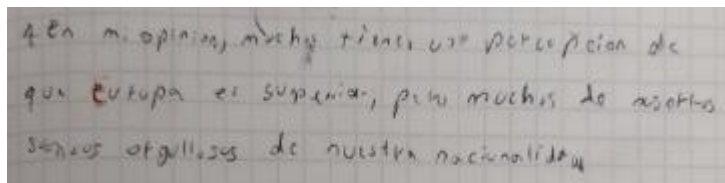 4 En mi opinion, muchos tienen una percepcion de
que Europa es superior, pero muchos de nosotros
somos orgullosos de nuestra nacionalidad